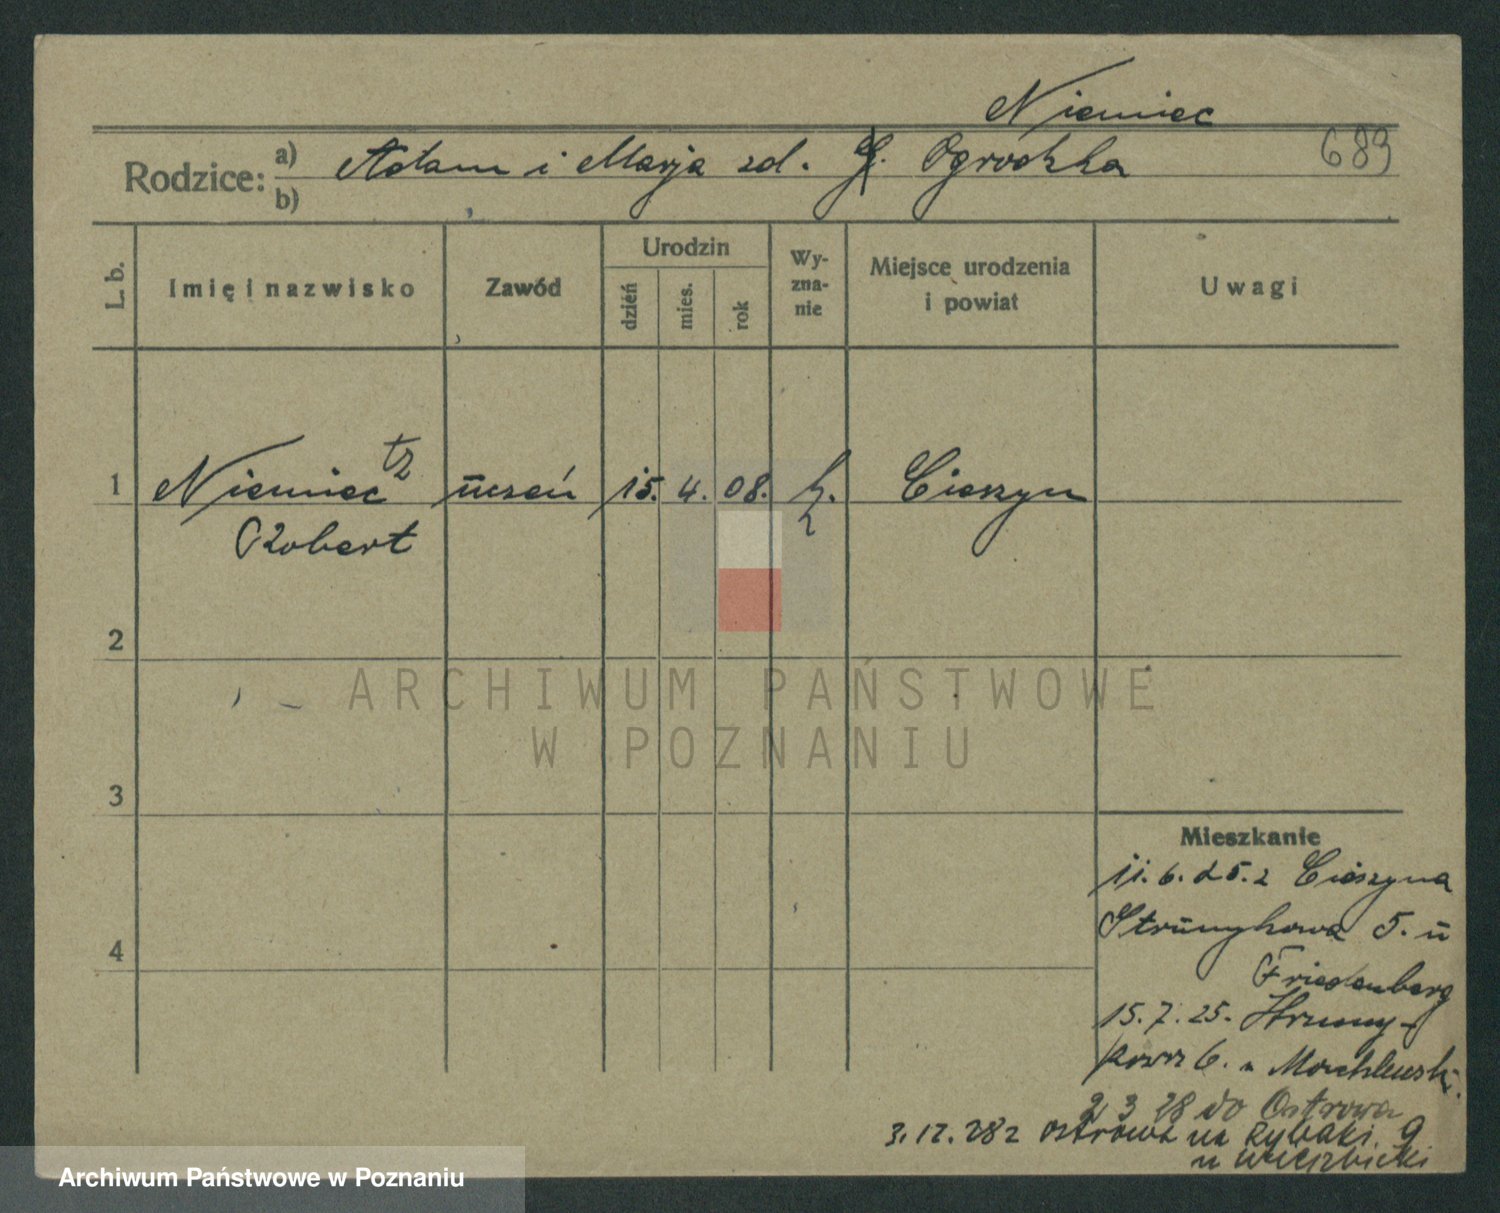 Niemiec
689
Rodzice: a) Adam i Marja zd. Ogrodzka
b)
L. b.
Imię i nazwisko
Zawód
Urodzin
dzień
mies.
rok
Wy-
zna-
nie
Miejsce urodzenia
i powiat
Uwagi
1 Niemiec uczeń 15. 4. 08. k. Cieszyn
Robert
2
3
4
Mieszkanie
11. 6. 25. z Cieszyna
Strumykowa 5. u
Friedenberg
15. 7. 25. Strumy-
kowa 6. u
2 3 28 do Ostrowa
3. 12. 28 z Ostrowa na Rybaki 9
u
ARCHIWUM PAŃSTWOWE
W POZNANIU
Archiwum Państwowe w Poznaniu